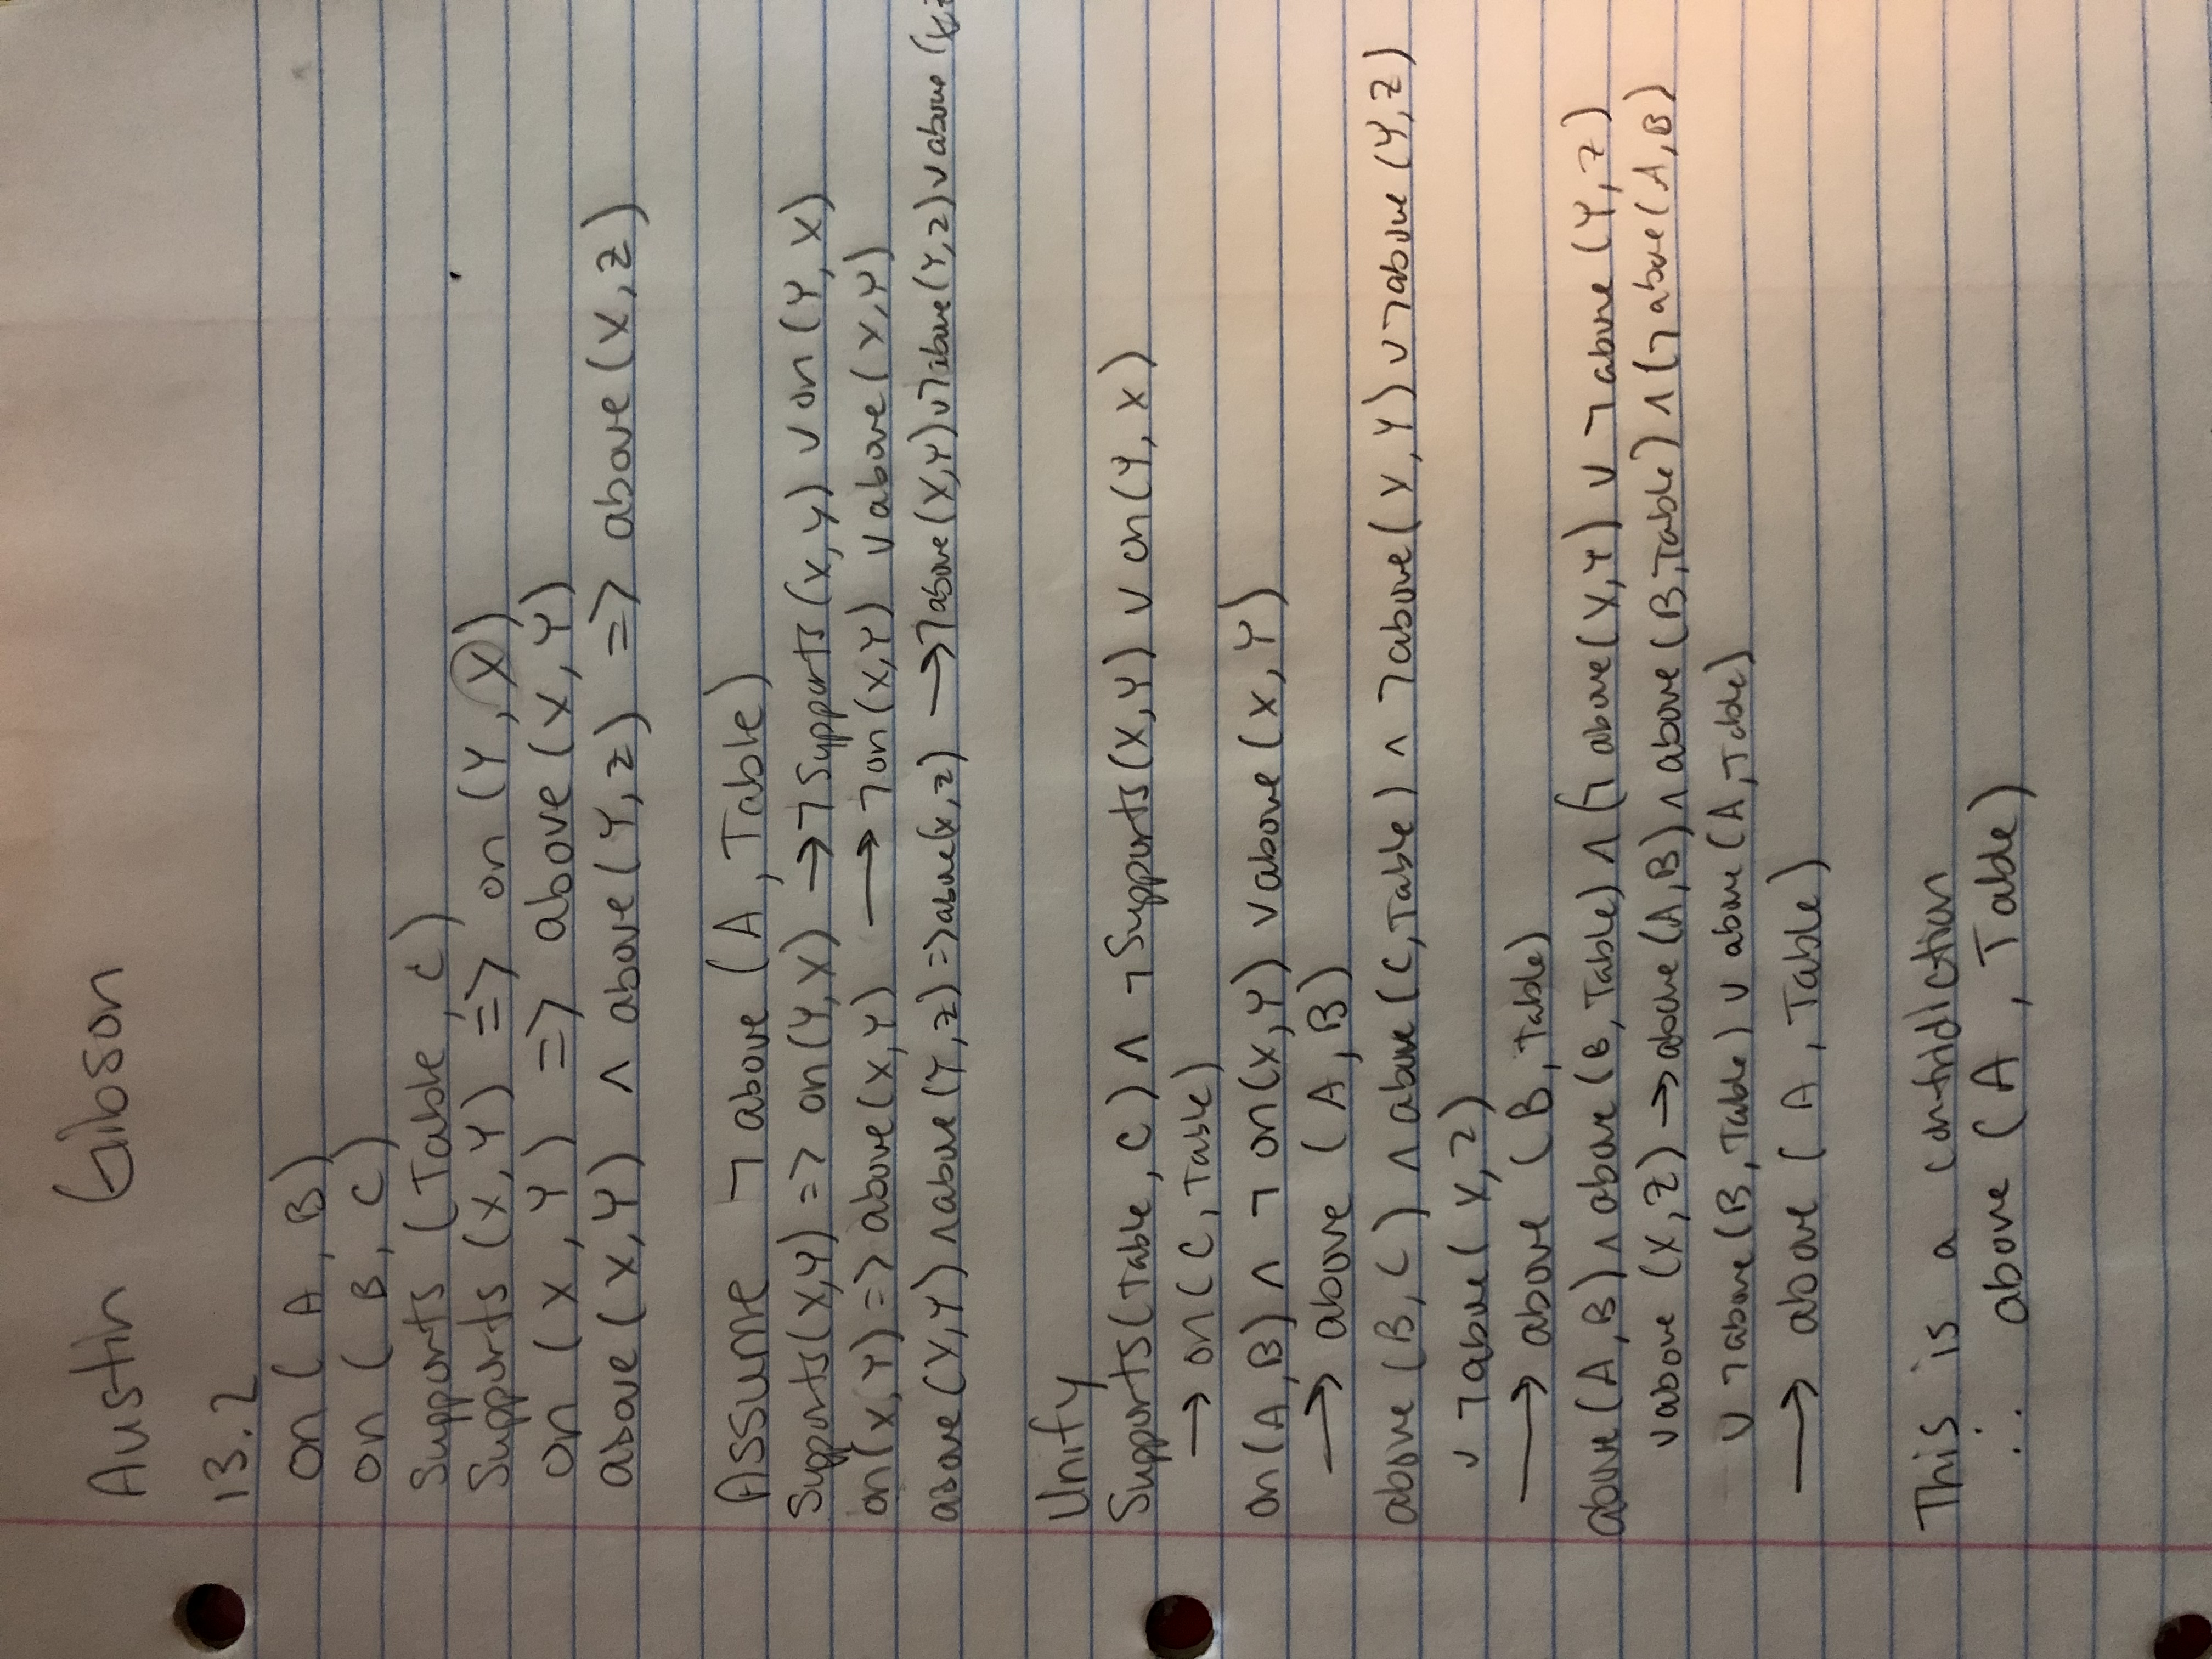 Austin Gibson
13.2
on ( A, B)
on ( B, C)
Supports (Table, C)
Supports (X, Y) => on (Y, X)
on (X, Y) => above (X, Y)
above (X, Y) ∧ above (Y, Z) => above (X, Z)
Assume ¬ above (A, Table)
Supports(X,Y) => on(Y,X) → ¬ Supports(X,Y) ∨ on (Y, X)
on(X,Y) => above(X,Y) → ¬on(X,Y) ∨ above(X,Y)
above (X,Y) ∧ above (Y,Z) => above(X,Z) → ¬above(X,Y) ∨ ¬above(Y,Z) ∨ above (X,Z
Unify
Supports(Table, C) ∧ ¬ Supports(X,Y) ∨ on(Y, X)
→ on(C, Table)
on(A,B) ∧ ¬ on(X,Y) ∨ above (X, Y)
→ above (A, B)
above (B, C) ∧ above (C, Table) ∧ ¬above(X,Y) ∨ ¬above (Y,Z)
∨ ¬above(X,Z)
→ above (B, Table)
above (A,B) ∧ above (B, Table) ∧ (¬ above(X,Y) ∨ ¬ above (Y,Z)
∨ above (X,Z) → above (A,B) ∧ above (B,Table) ∧ (¬ above(A,B)
∨ ¬ above(B, Table) ∨ above (A,Table)
→ above (A, Table)
This is a contridiction
∴ above (A, Table)